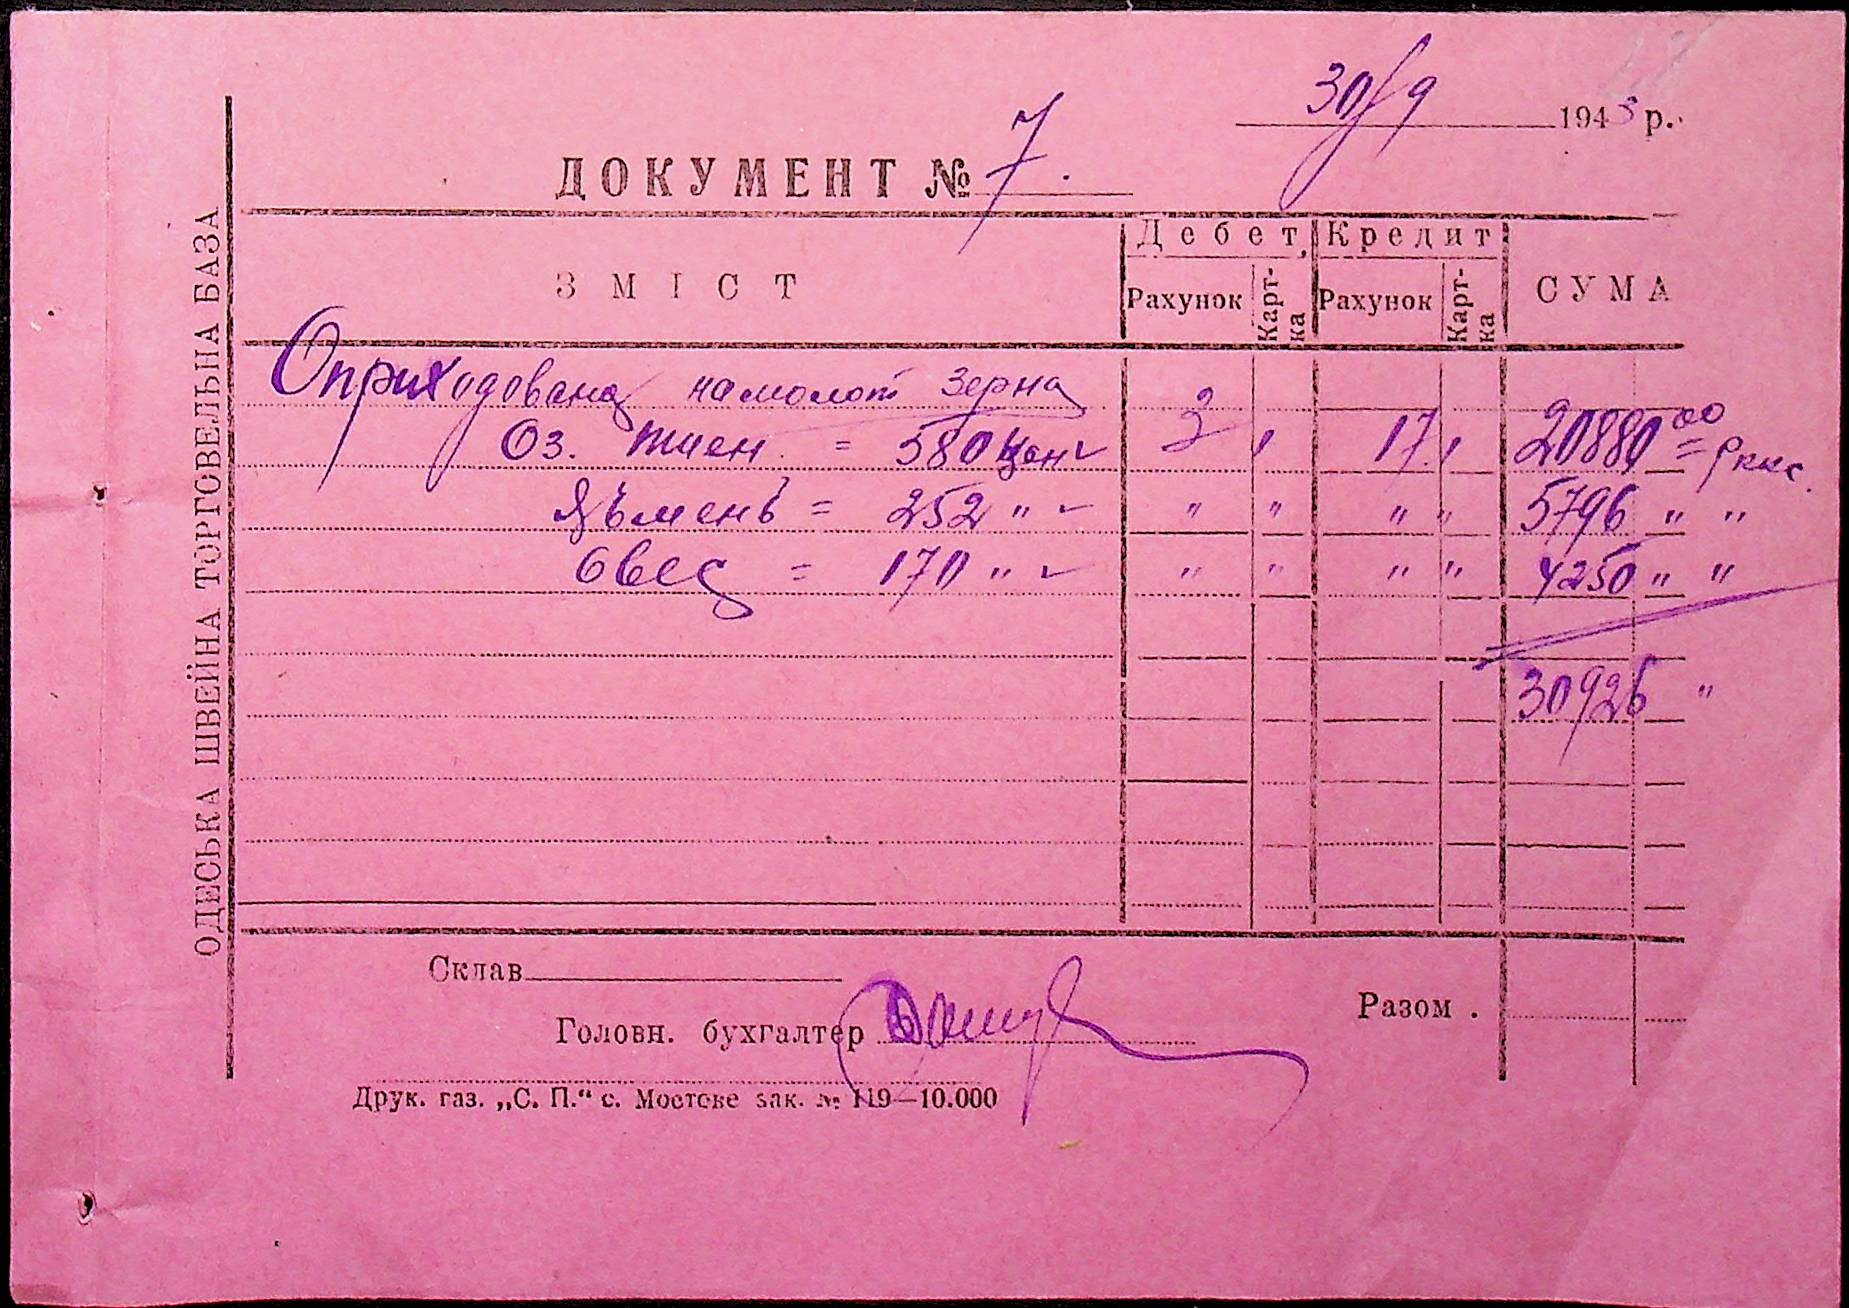 30/9 1943 р.
ДОКУМЕНТ № 7.
ОДЕСЬКА ШВЕЙНА ТОРГОВЕЛЬНА БАЗА
ЗМІСТ Дебет Кредит СУМА
Рахунок Картка Рахунок Картка
Оприходована намолот зерна
Оз. пшен. = 580 цен 3 17 20880 00 = рккс.
Ячьмень = 252 " " " " " 5796 " "
Овес = 170 " " " " " 4250 " "
30926 "
Склав
Головн. бухгалтер
Разом .
Друк. газ. „С. П.“ с. Мостове зак. № 119—10.000